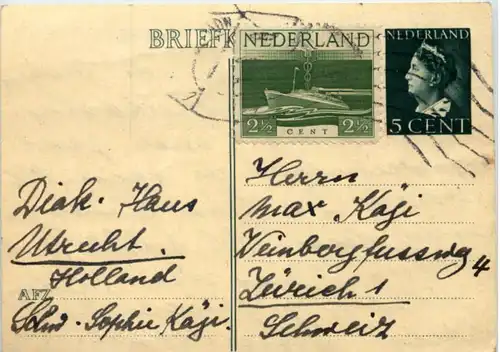 BRIEFK
NEDERLAND
2½ CENT 2½
NEDERLAND
5 CENT
Diak. Haus
Utrecht.
Holland
AFZ.
Schw. Sophie Kägi.
Herrn
Max Kägi
Weinbergfussweg 4
Zürich 1
Schweiz